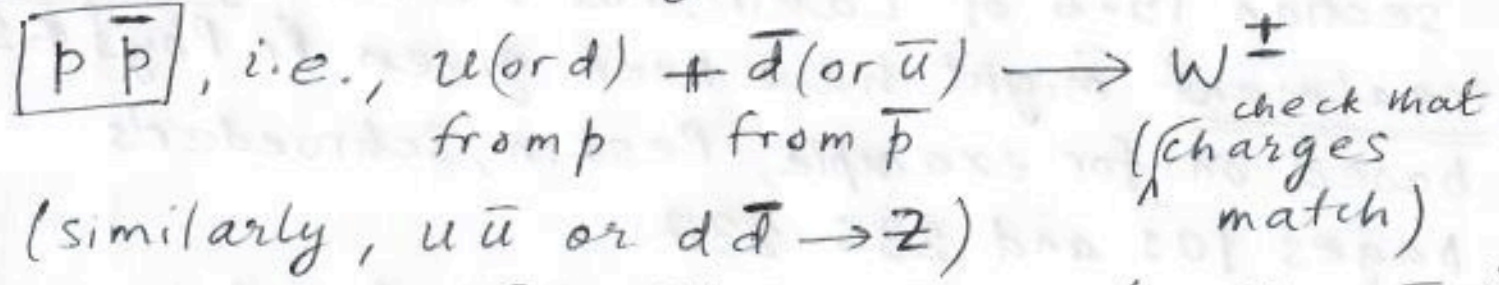 p p̄, i.e., u(or d) + d̄(or ū) ⟶ W±
from p from p̄ (check that charges
(similarly, u ū or d d̄ → Z) match)